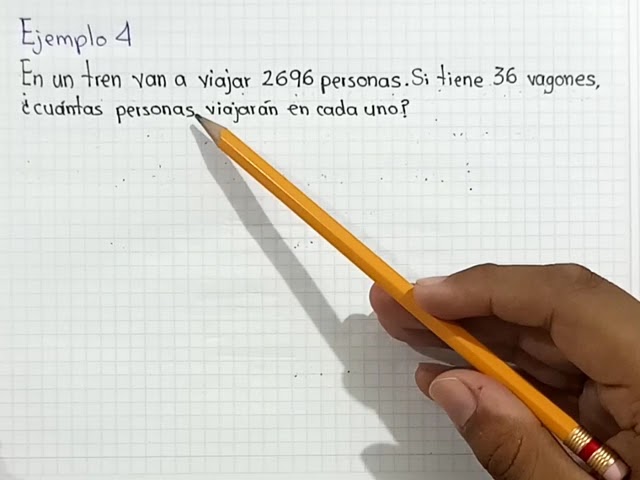 Ejemplo 4
En un tren van a viajar 2696 personas. Si tiene 36 vagones,
¿cuántas personas viajarán en cada uno?